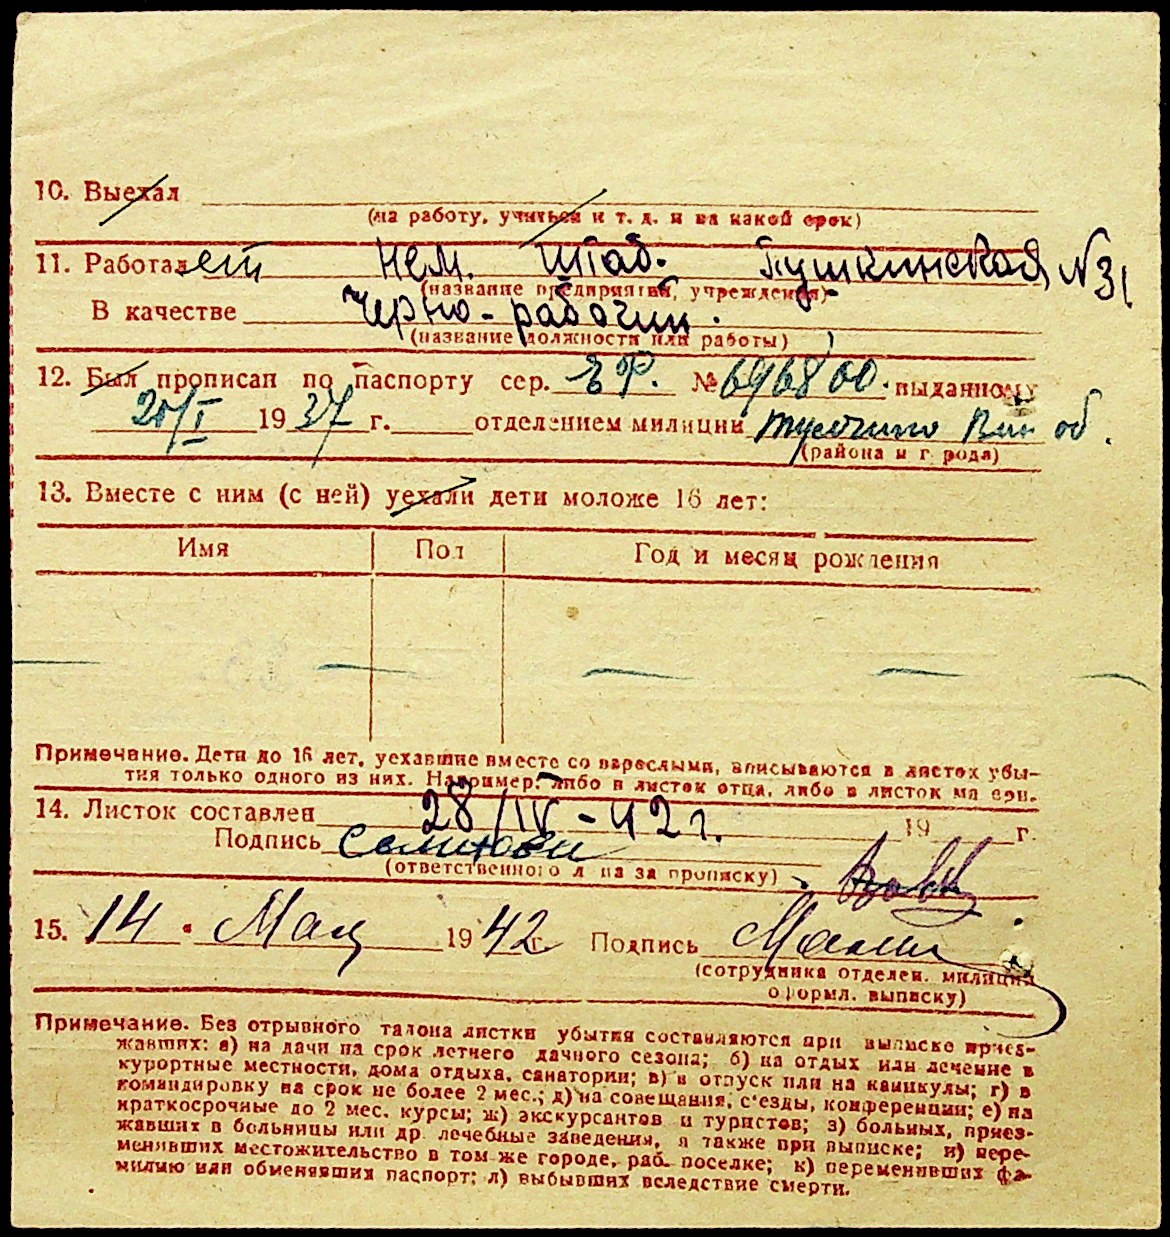 10. Выехал
(на работу, учиться и т. д. и на какой срок)
11. Работает нем. штаб. Пушкинская, N 31
(название предприятия, учреждения)
В качестве Черно-рабочий.
(название должности или работы)
12. Был прописан по паспорту сер. ЕР. № 696800. выданному
20/I 1937 г. отделением милиции Вин об.
(района и города)
13. Вместе с ним (с ней) уехали дети моложе 16 лет:
Имя Пол Год и месяц рождения
Примечание. Дети до 16 лет, уехавшие вместе со взрослыми, вписываются в листок убы-
тия только одного из них. Например: либо в листок отца, либо в листок матери.
14. Листок составлен 28/IV-42 г. 19 г.
Подпись
(ответственного лица за прописку)
15. 14 " Мая 1942 г. Подпись
(сотрудника отделен. милиции
оформл. выписку)
Примечание. Без отрывного талона листки убытия составляются при выписке приез-
жавших: а) на дачи на срок летнего дачного сезона; б) на отдых или лечение в
курортные местности, дома отдыха, санатории; в) в отпуск или на каникулы; г) в
командировку на срок не более 2 мес.; д) на совещания, с'езды, конференции; е) на
краткосрочные до 2 мес. курсы; ж) экскурсантов и туристов; з) больных, приез-
жавших в больницы или др. лечебные заведения, а также при выписке; и) пере-
менивших местожительство в том-же городе, раб. поселке; к) переменивших фа-
милию или обменявших паспорт; л) выбывших вследствие смерти.